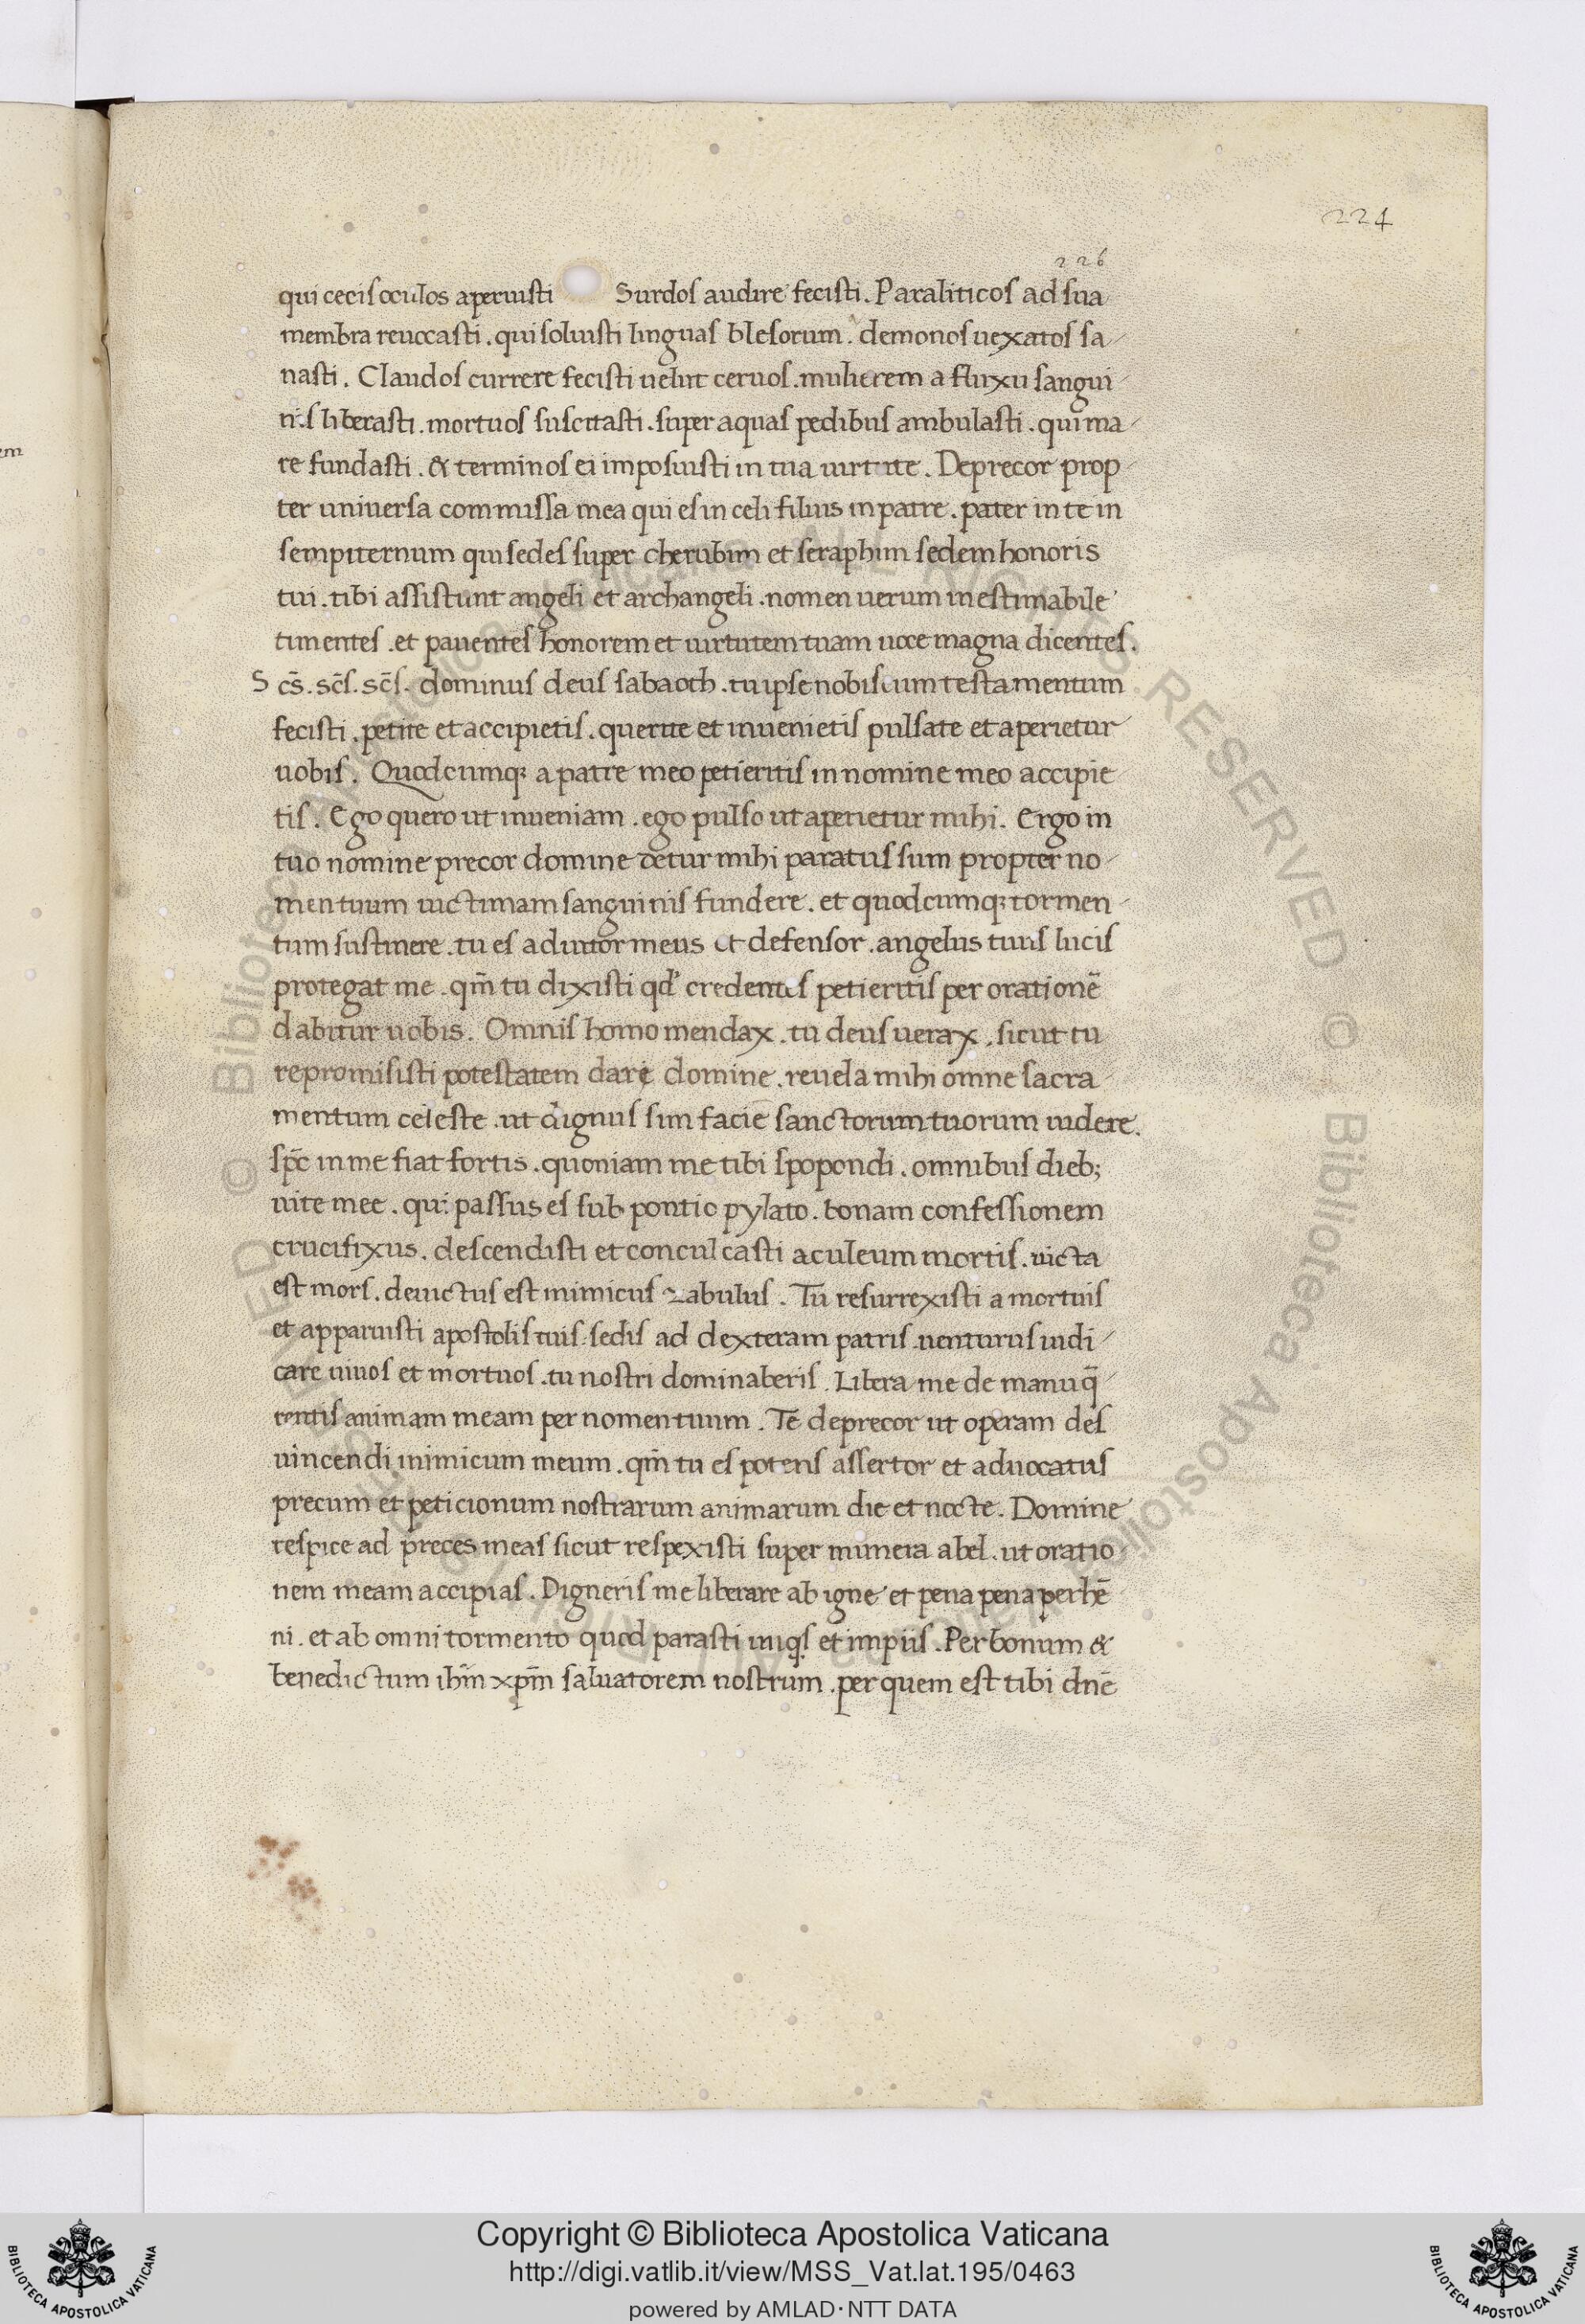 224
226
qui cecis oculos aperuisti Surdos audire fecisti. Paraliticos ad sua
membra reuocasti. qui soluisti linguas blesorum. demonos uexatos sa-
nasti. Claudos currere fecisti uelut ceruos. mulierem a fluxu sangui-
nis liberasti. mortuos suscitasti. super aquas pedibus ambulasti. qui ma-
re fundasti. & terminos ei imposuisti in tua uirtute. Deprecor prop-
ter uniuersa commissa mea qui es in celi filius in patre. pater in te in
sempiternum qui sedes super cherubim et seraphim sedem honoris
tui. tibi assistunt angeli et archangeli. nomen uerum inestimabile
timentes. et pauentes honorem et uirtutem tuam uoce magna dicentes.
Scs̄. sc̄s. sc̄s. dominus deus sabaoth. tu ipse nobiscum testamentum
fecisti. petite et accipietis. querite et inuenietis pulsate et aperietur
uobis. Quodcumq; a patre meo petieritis in nomine meo accipie-
tis. Ego quero ut inueniam. ego pulso ut aperietur mihi. Ergo in
tuo nomine precor domine detur mihi paratus sum propter no-
men tuum uictimam sanguinis fundere. et quodcumq; tormen-
tum sustinere. tu es adiutor meus et defensor. angelus tuus lucis
protegat me. qm̄ tu dixisti qđ credentes petieritis per orationē
dabitur uobis. Omnis homo mendax. tu deus uerax. sicut tu
repromisisti potestatem dare domine. reuela mihi omne sacra-
mentum celeste. ut dignus sim faciē sanctorum tuorum uidere.
sp̄c in me fiat fortis. quoniam me tibi spopondi. omnibus dieb;
uite mee. qui passus es sub pontio pylato. bonam confessionem
crucifixus. descendisti et conculcasti aculeum mortis. uicta
est mors. deuictus est inimicus zabulus. Tu resurrexisti a mortuis
et apparuisti apostolis tuis. sedis ad dexteram patris. uenturus iudi-
care uiuos et mortuos. tu nostri dominaberis. Libera me de manu q̄-
rentis animam meam per nomen tuum. Te deprecor ut operam des
uincendi inimicum meum. qm̄ tu es potens assertor et aduocatus
precum et peticionum nostrarum animarum die et nocte. Domine
respice ad preces meas sicut respexisti super munera abel. ut oratio-
nem meam accipias. Digneris me liberare ab igne et pena pena perhē-
ni. et ab omni tormento quod parasti iniqs et impiis. Per bonum &
benedictum ihm̄ xpm̄ saluatorem nostrum. per quem est tibi dnē
Copyright © Biblioteca Apostolica Vaticana
http://digi.vatlib.it/view/MSS_Vat.lat.195/0463
powered by AMLAD·NTT DATA